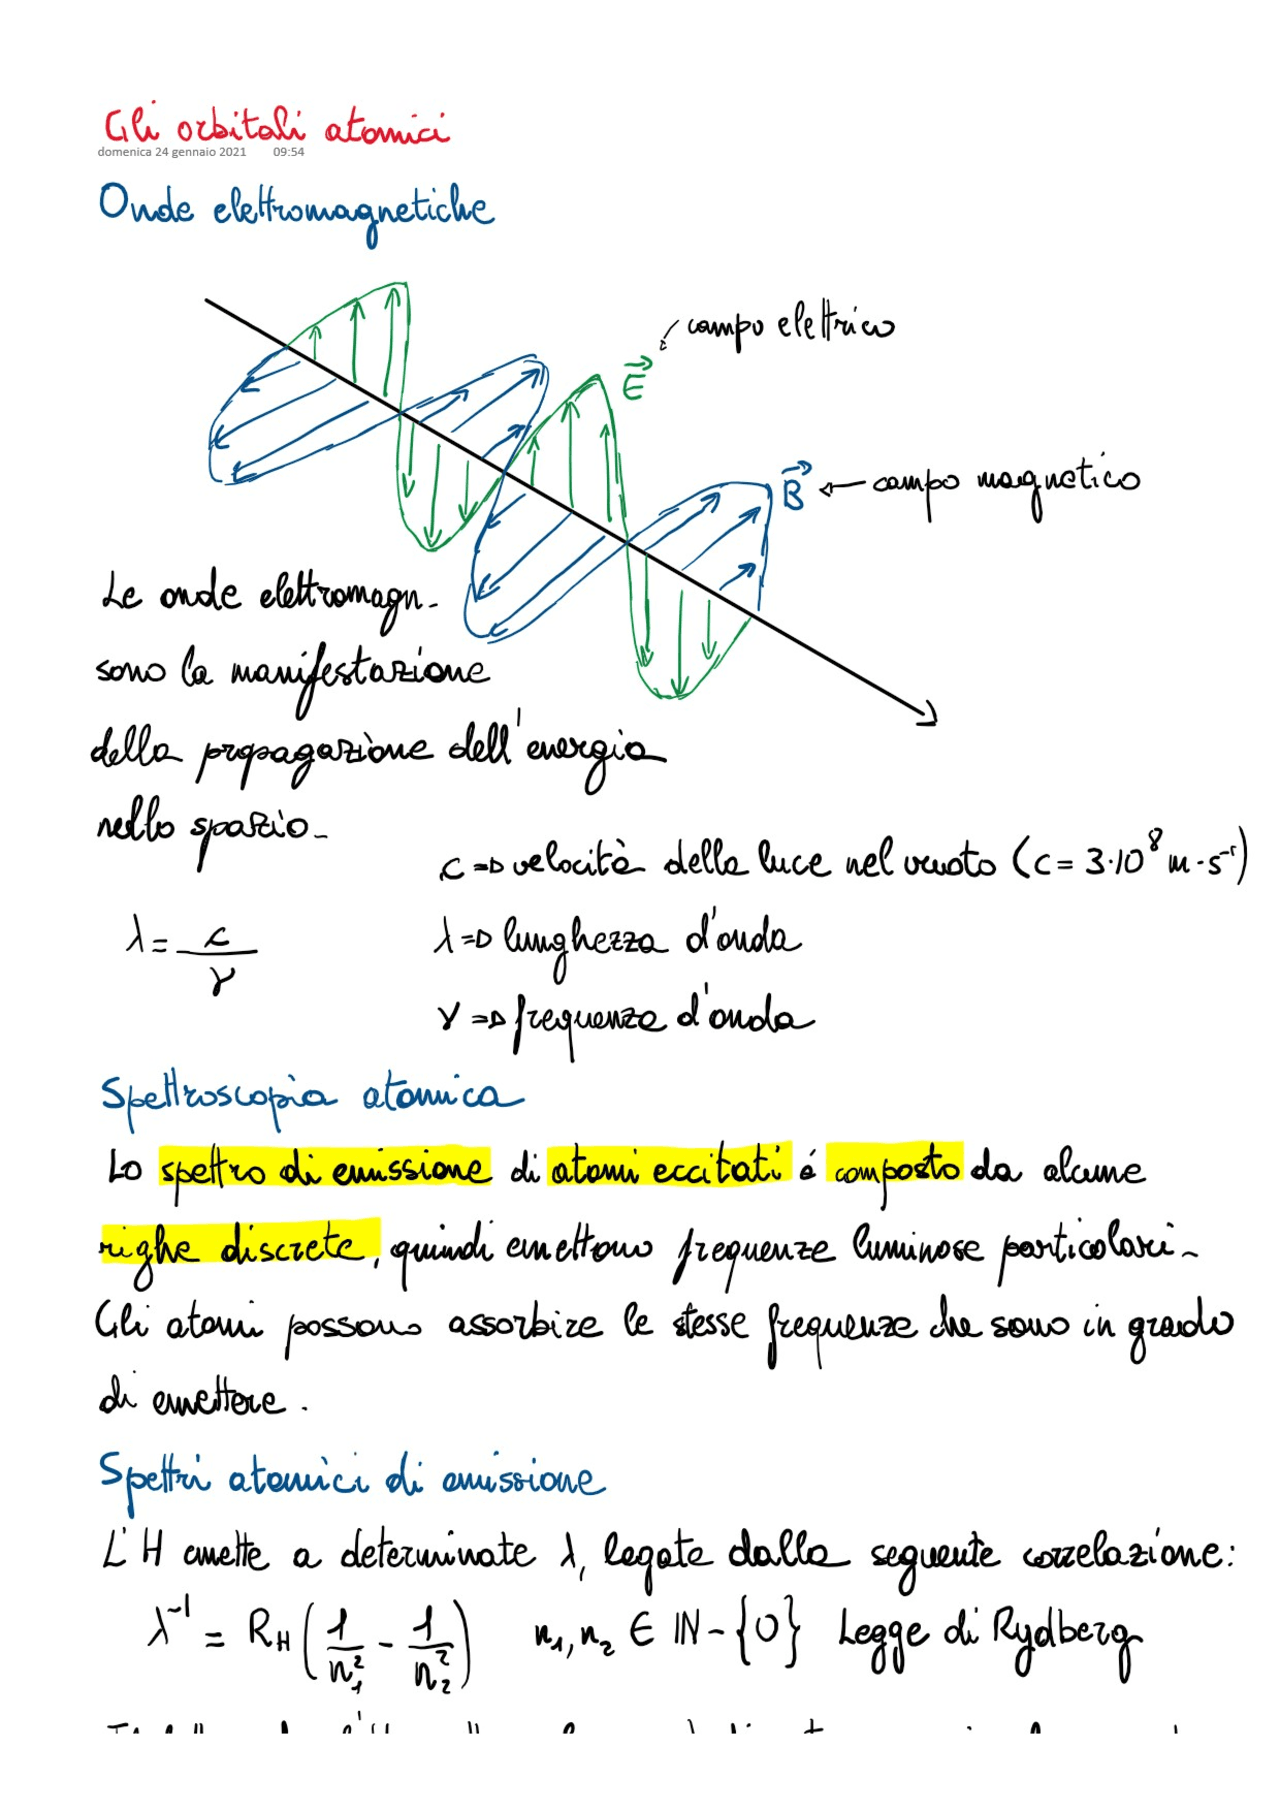 Gli orbitali atomici
domenica 24 gennaio 2021 09:54
Onde elettromagnetiche
campo elettrico
E
B campo magnetico
Le onde elettromagn.
sono la manifestazione
della propagazione dell'energia
nello spazio.
c => velocità della luce nel vuoto (c = 3·10⁸ m·s⁻¹)
λ = c/γ
λ => lunghezza d'onda
γ => frequenza d'onda
Spettroscopia atomica
Lo spettro di emissione di atomi eccitati é composto da alcune
righe discrete, quindi emettono frequenze luminose particolari.
Gli atomi possono assorbire le stesse frequenze che sono in grado
di emettere.
Spettri atomici di emissione
L'H emette a determinate λ, legate dalla seguente correlazione:
λ⁻¹ = R_H (1/n₁² - 1/n₂²) n₁, n₂ ∈ IN - {0} Legge di Rydberg